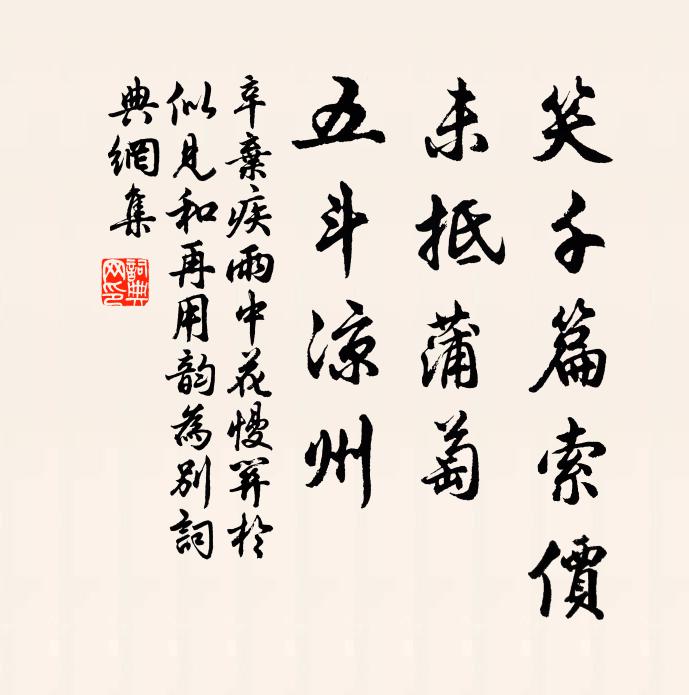 笑千篇索價
未抵蒲萄
五斗涼州
辛棄疾雨中花慢筭於
似見和再用韵為別詞
典網集
詞典網印